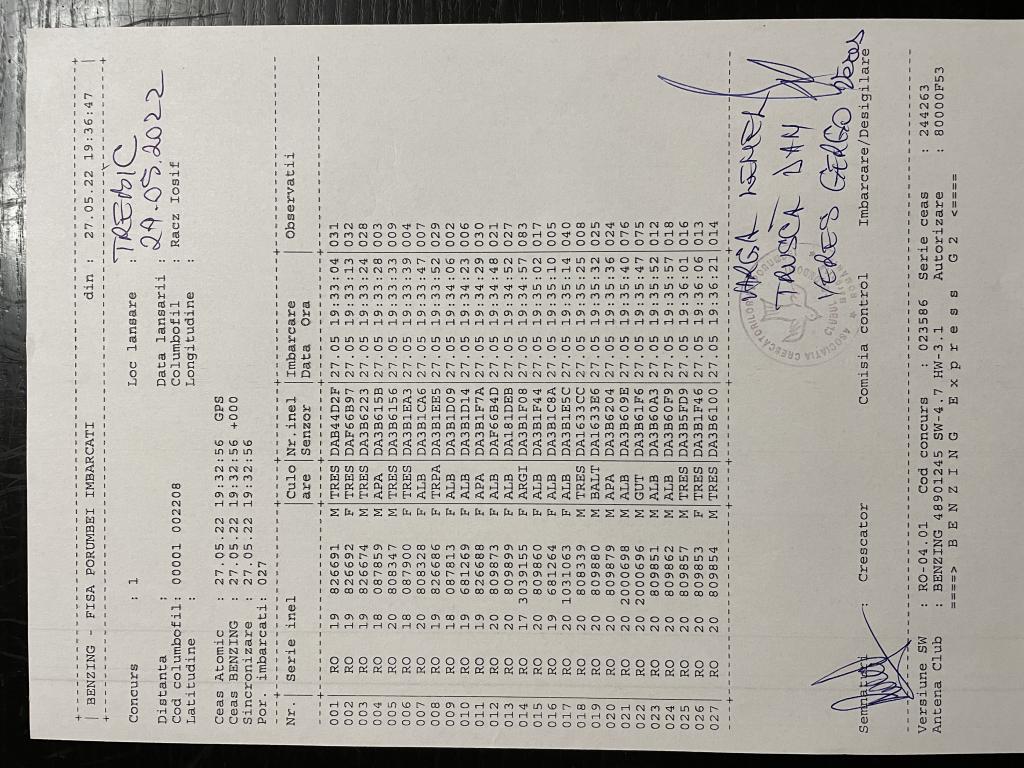 BENZING - FISA PORUMBEI IMBARCATI din : 27.05.22 19:36:47
Concurs : 1 Loc lansare : TREBIC
Distanta : Data lansarii : 29.05.2022
Cod columbofil: 00001 002208 Columbofil : Racz Iosif
Latitudine : Longitudine :
Ceas Atomic : 27.05.22 19:32:56 GPS
Ceas BENZING : 27.05.22 19:32:56 +000
Sincronizare : 27.05.22 19:32:56
Por. imbarcati: 027
Nr. | Serie inel | Culo | Nr.inel | Imbarcare | Observatii
are | Senzor | Data Ora
001 RO 19 826691 M TRES DAB44D2F 27.05 19:33:04 031
002 RO 19 826692 F TRES DAF66B97 27.05 19:33:13 032
003 RO 19 826674 M TRES DA3B6223 27.05 19:33:24 028
004 RO 18 087859 M APA DA3B615B 27.05 19:33:28 003
005 RO 20 808347 M TRES DA3B6156 27.05 19:33:33 009
006 RO 18 087900 F TRES DA3B1EA3 27.05 19:33:39 004
007 RO 20 808328 F ALB DA3B1CA6 27.05 19:33:47 007
008 RO 19 826686 F TRPA DA3B1EE5 27.05 19:33:52 029
009 RO 18 087813 F ALB DA3B1D09 27.05 19:34:06 002
010 RO 19 681269 F ALB DA3B1D14 27.05 19:34:23 006
011 RO 19 826688 F APA DA3B1F7A 27.05 19:34:29 030
012 RO 20 809873 F ALB DAF66B4D 27.05 19:34:48 021
013 RO 20 809899 F ALB DA181DEB 27.05 19:34:52 027
014 RO 17 3039155 F ARGI DA3B1F08 27.05 19:34:57 083
015 RO 20 809860 F ALB DA3B1F44 27.05 19:35:02 017
016 RO 19 681264 F ALB DA3B1C8A 27.05 19:35:10 005
017 RO 20 1031063 F ALB DA3B1E5C 27.05 19:35:14 040
018 RO 20 808339 M TRES DA1633CC 27.05 19:35:25 008
019 RO 20 809880 M BALT DA1633E6 27.05 19:35:32 025
020 RO 20 809879 M APA DA3B6204 27.05 19:35:36 024
021 RO 20 2000698 M ALB DA3B609E 27.05 19:35:40 076
022 RO 20 2000696 M GUT DA3B61F6 27.05 19:35:47 075
023 RO 20 809851 M ALB DA3B60A3 27.05 19:35:52 012
024 RO 20 809862 M ALB DA3B60F9 27.05 19:35:57 018
025 RO 20 809857 M TRES DA3B5FD9 27.05 19:36:01 016
026 RO 20 809853 F TRES DA3B1F46 27.05 19:36:06 013
027 RO 20 809854 M TRES DA3B6100 27.05 19:36:21 014
VARGA
TRUSCĂ DAN
VERES GERGO Veres
Semnaturi : Crescator Comisia control Imbarcare/Desigilare
Versiune SW : RO-04.01 Cod concurs : 023586 Serie ceas : 244263
Antena Club : BENZING 48901245 SW-4.7 HW-3.1 Autorizare : 80000F53
====> B E N Z I N G E x p r e s s G 2 <====